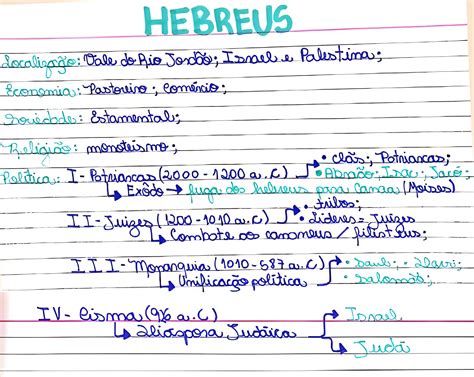 HEBREUS
Localização: Vale do Rio Jordão; Israel e Palestina;
Economia: Pastoreiro; comércio;
Sociedade: Estamental;
Religião: monoteísmo;
Política: I - Patriarcas (2000 - 1200 a.C) • clãs; Patriarcas;
• Abraão; Isac; Jacó;
Êxodo → fuga dos hebreus para Canaã (Moises)
• tribos;
II - Juizes (1200 - 1010 a.C) • Líderes = Juízes
Combate aos cananeus / filisteus;
III - Monarquia (1010 - 587 a.C) • Saul; • Davi;
Unificação política • Salomão;
IV - Cisma (926 a.C) Israel
Diáspora Judáica
Judá